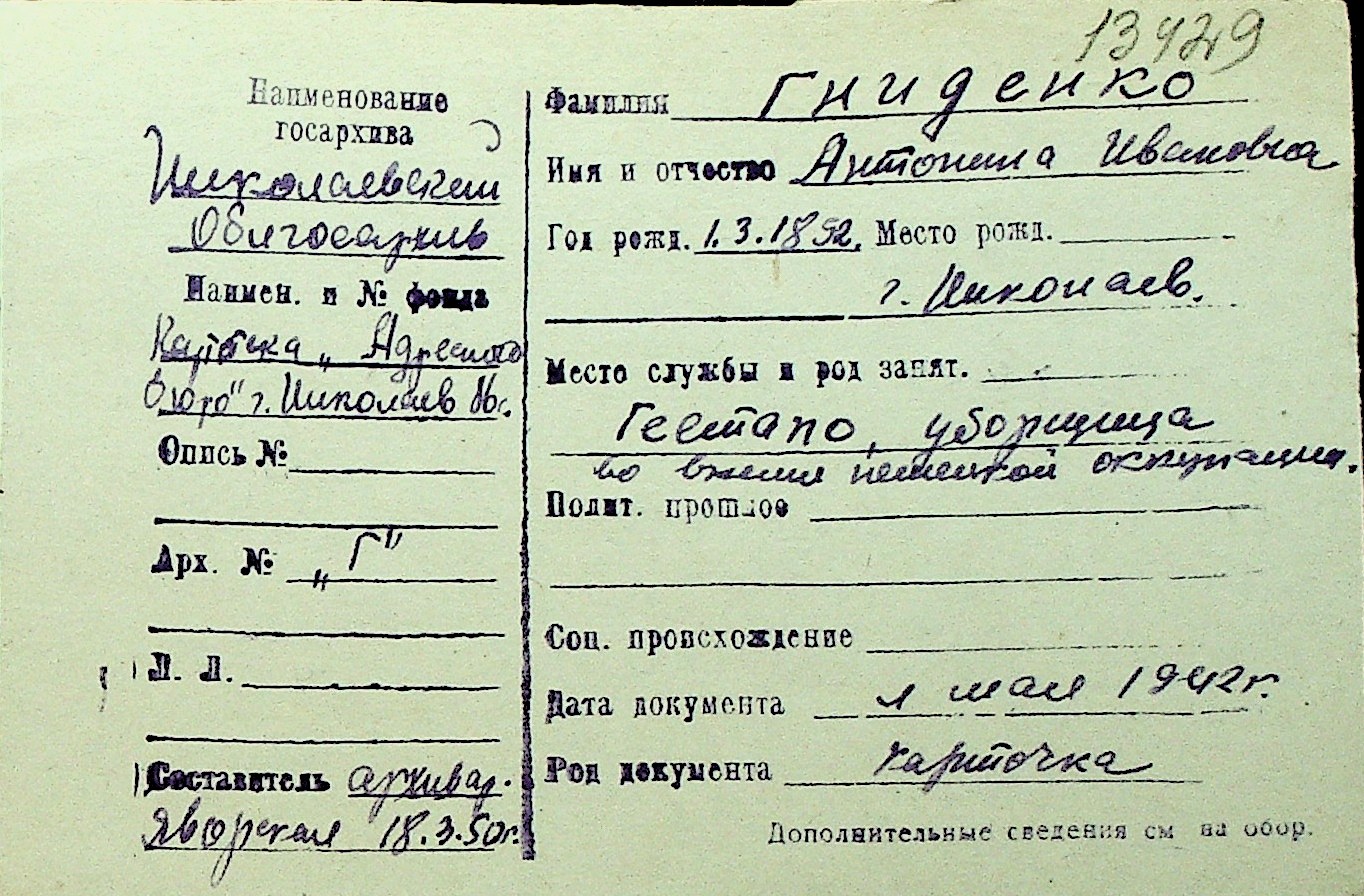 13429
Наименование
госархива
Николаевский
Облгосархив
Наимен. и № фонда
Картотека „Адресного
бюро" г. Николаев
Опись №
Арх. № „Г"
Л. Л.
Составитель архивар.
Яворская 18.3.50г.
Фамилия Гниденко
Имя и отчество Антонина Ивановна
Год рожд. 1.3.1892. Место рожд.
г. Николаев.
Место службы и род занят.
Гестапо, уборщица
во время немецкой оккупации.
Полит. прошлое
Соц. происхождение
Дата документа 1 мая 1942г.
Род документа карточка
Дополнительные сведения см на обор.